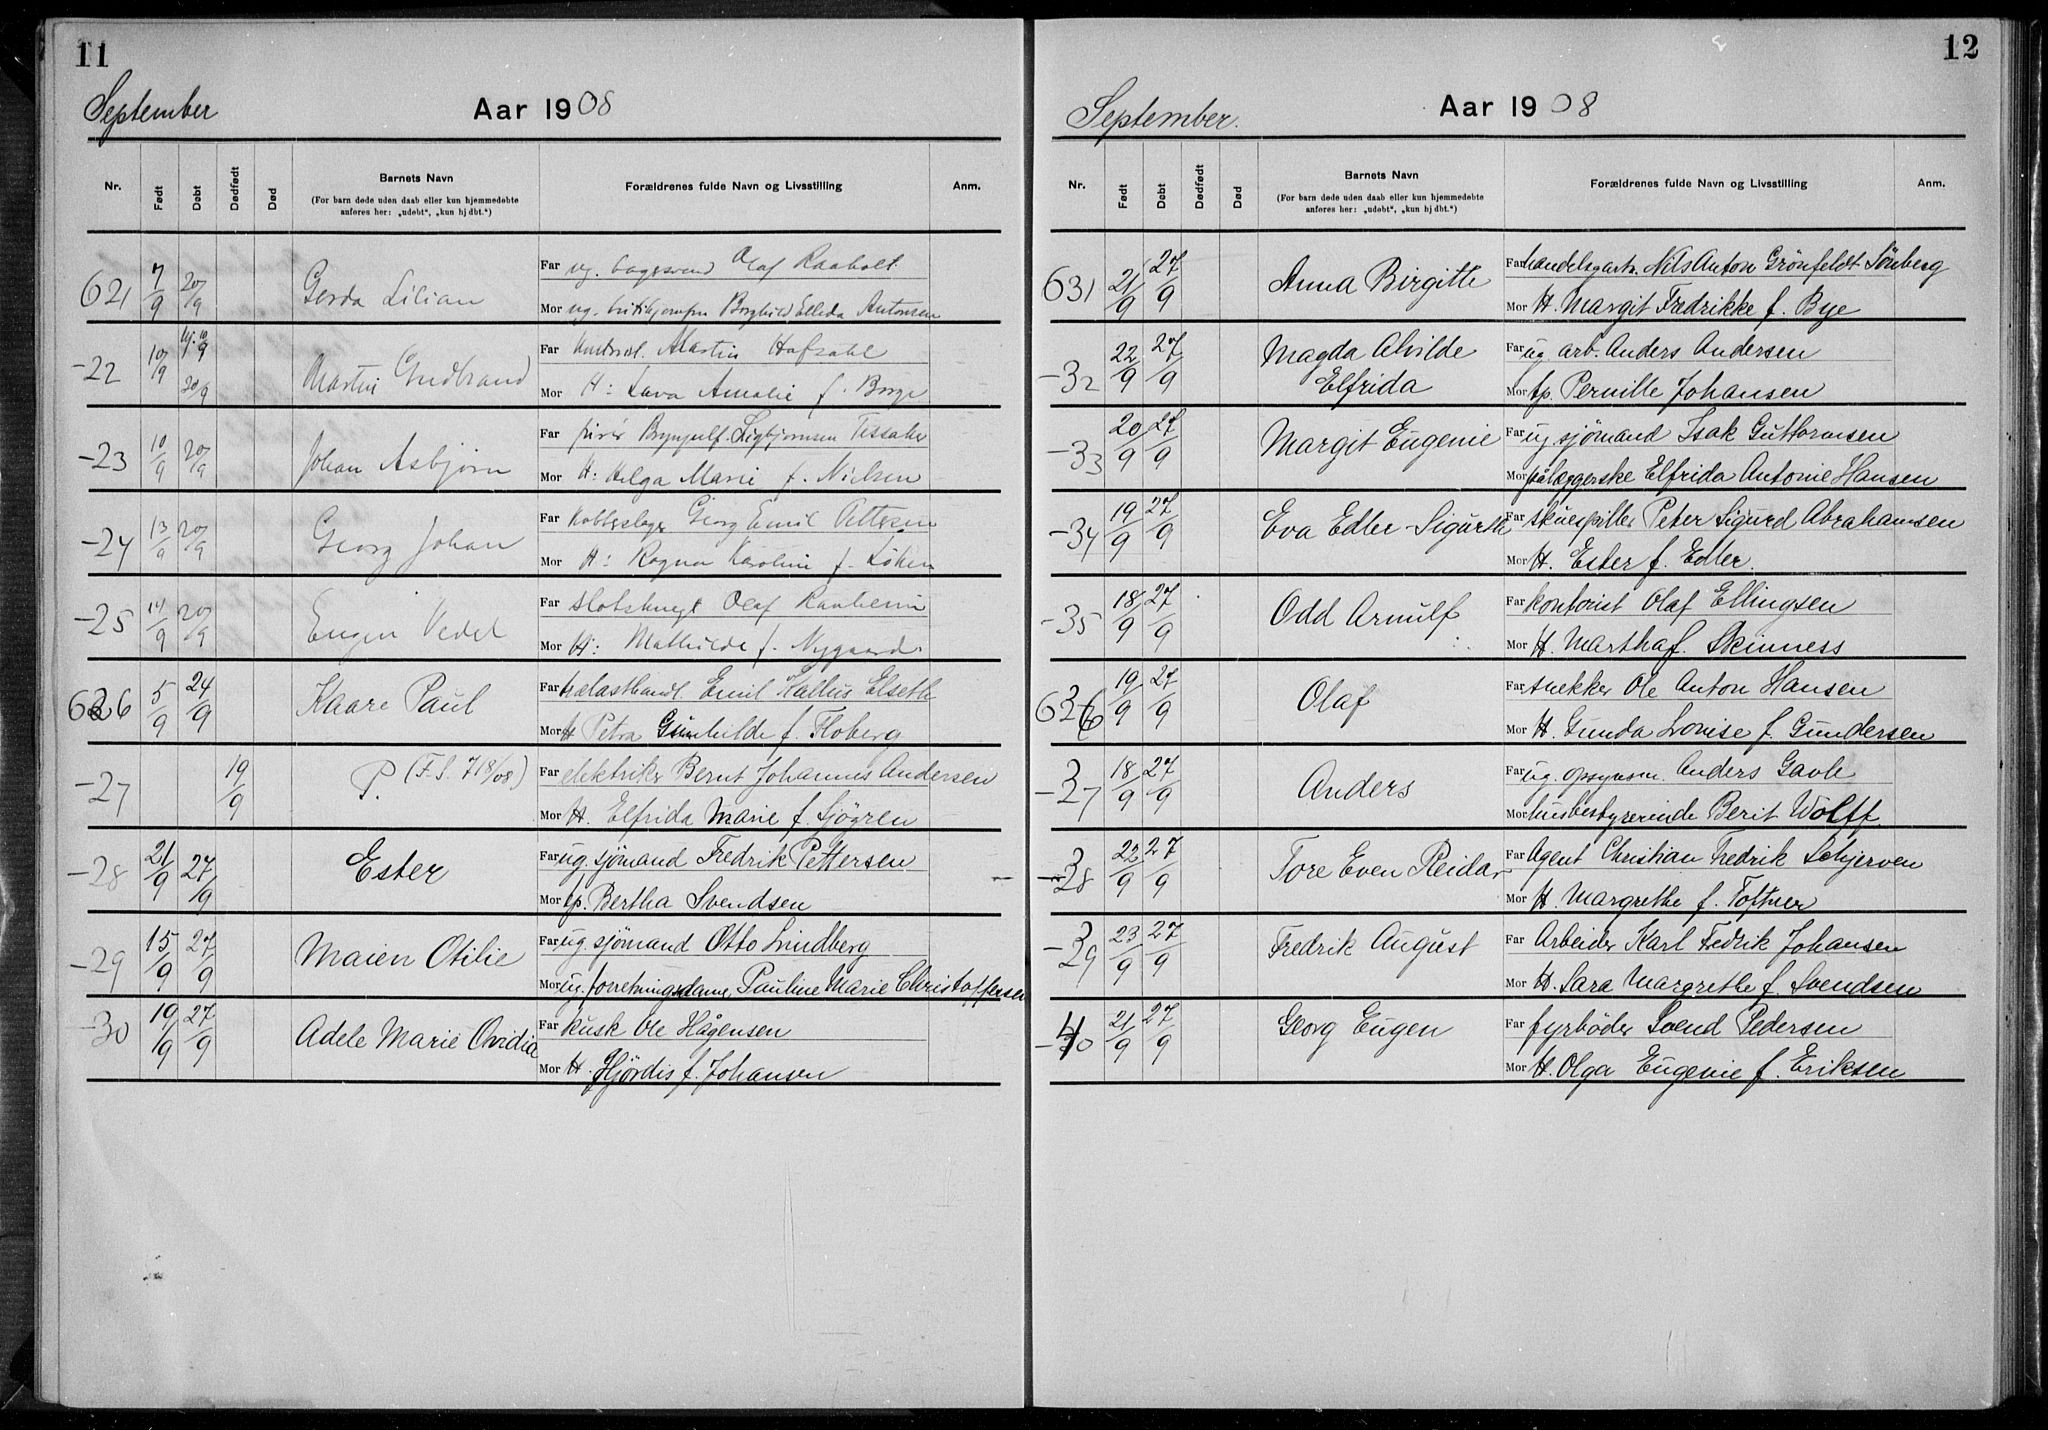 11
September
Aar 1908
Nr.
Født
Døbt
Dødfødt
Død
Barnets Navn
(For barn døde uden daab eller kun hjemmedøbte
anføres her: „udøbt“, „kun hj dbt.“)
Forældrenes fulde Navn og Livsstilling
Anm.
621 7/9 20/9 Gerda Lilian
Far ug. bagersvend Olaf Raaholt
Mor ug. Borghild Elleda Antonsen
-22 10/9 20/9 Martin Gudbrand
Far Martin Hafsahl
Mor H: Lava Amalie f. Borge
-23 10/9 20/9 Johan Asbjørn
Far Brynjulf Sigbjørnsen
Mor H: Helga Marie f. Nielsen
-24 13/9 20/9 Georg Johan
Far Kobberslager Georg Emil Pettersen
Mor H: Ragna Karoline f. Løken
-25 14/9 20/9 Eugen Vedel
Far Olaf
Mor H: Mathilde f. Nygaard
626 5/9 24/9 Kaare Paul
Far trælasthandl. Emil Kallus Elseth
Mor H Petra Gunhilde f. Floberg
-27 19/9 P. (F.S. 718/08)
Far elektriker Bernt Johannes Andersen
Mor H. Elfrida Marie f. Sjögren
-28 21/9 27/9 Ester
Far ug. sjömand Fredrik Pettersen
Mor tp. Bertha Svendsen
-29 15/9 27/9 Maien Otilie
Far ug. sjömand Otto Lindberg
Mor ug. forretningsdame, Pauline Marie Christoffersen
-30 19/9 27/9 Adele Marie Ovidia
Far kusk Ole Hågensen
Mor H. Hjördis f. Johansen
12
September.
Aar 1908
Nr.
Født
Døbt
Dødfødt
Død
Barnets Navn
(For barn døde uden daab eller kun hjemmedøbte
anføres her: „udøbt“, „kun hj dbt.“)
Forældrenes fulde Navn og Livsstilling
Anm.
631 21/9 27/9 Anna Birgitte
Far handelsgartn. Nils Anton Grönfeldt Sönberg
Mor H. Margit Fredrikke f. Bye
-32 22/9 27/9 Magda Alvilde
Elfrida
Far ug arb. Anders Andersen
Mor tp. Pernille Johansen
-33 20/9 27/9 Margit Eugenie
Far ug sjömand Isak Guttormsen
Mor pålæggerske Elfrida Antonie Hansen
-34 19/9 27/9 Eva Edler-Sigurth
Far skuespiller Peter Sigurd Abrahamsen
Mor H. Ester f. Edler.
-35 18/9 27/9 Odd Arnulf
Far kontorist Olaf Ellingsen
Mor H. Martha f. Skinness
636 19/9 27/9 Olaf
Far snekker Ole Anton Hansen
Mor H. Gunda Lovise f. Gundersen
-37 18/9 27/9 Anders
Far ug. opsynsm. Anders Gavle
Mor husbestyrerinde Berit Wolff
-38 22/9 27/9 Tore Even Reidar
Far Agent Christian Fredrik Schjerven
Mor H. Margrethe f. Toftner
-39 23/9 27/9 Fredrik August
Far Arbeider Karl Fredrik Johansen
Mor H. Sara Margrethe f. Svendsen
-40 21/9 27/9 Georg Eugen
Far fyrböder Svend Pedersen
Mor H. Olga Eugenie f. Eriksen